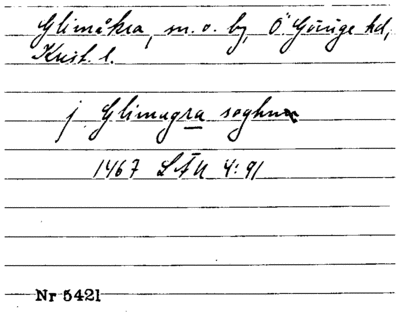 Glimåkra, sn. o. by, Ö. Göinge hd,
Krist. l.
j Glimugra soghn
1467 LÄU 4:91
Nr 5421